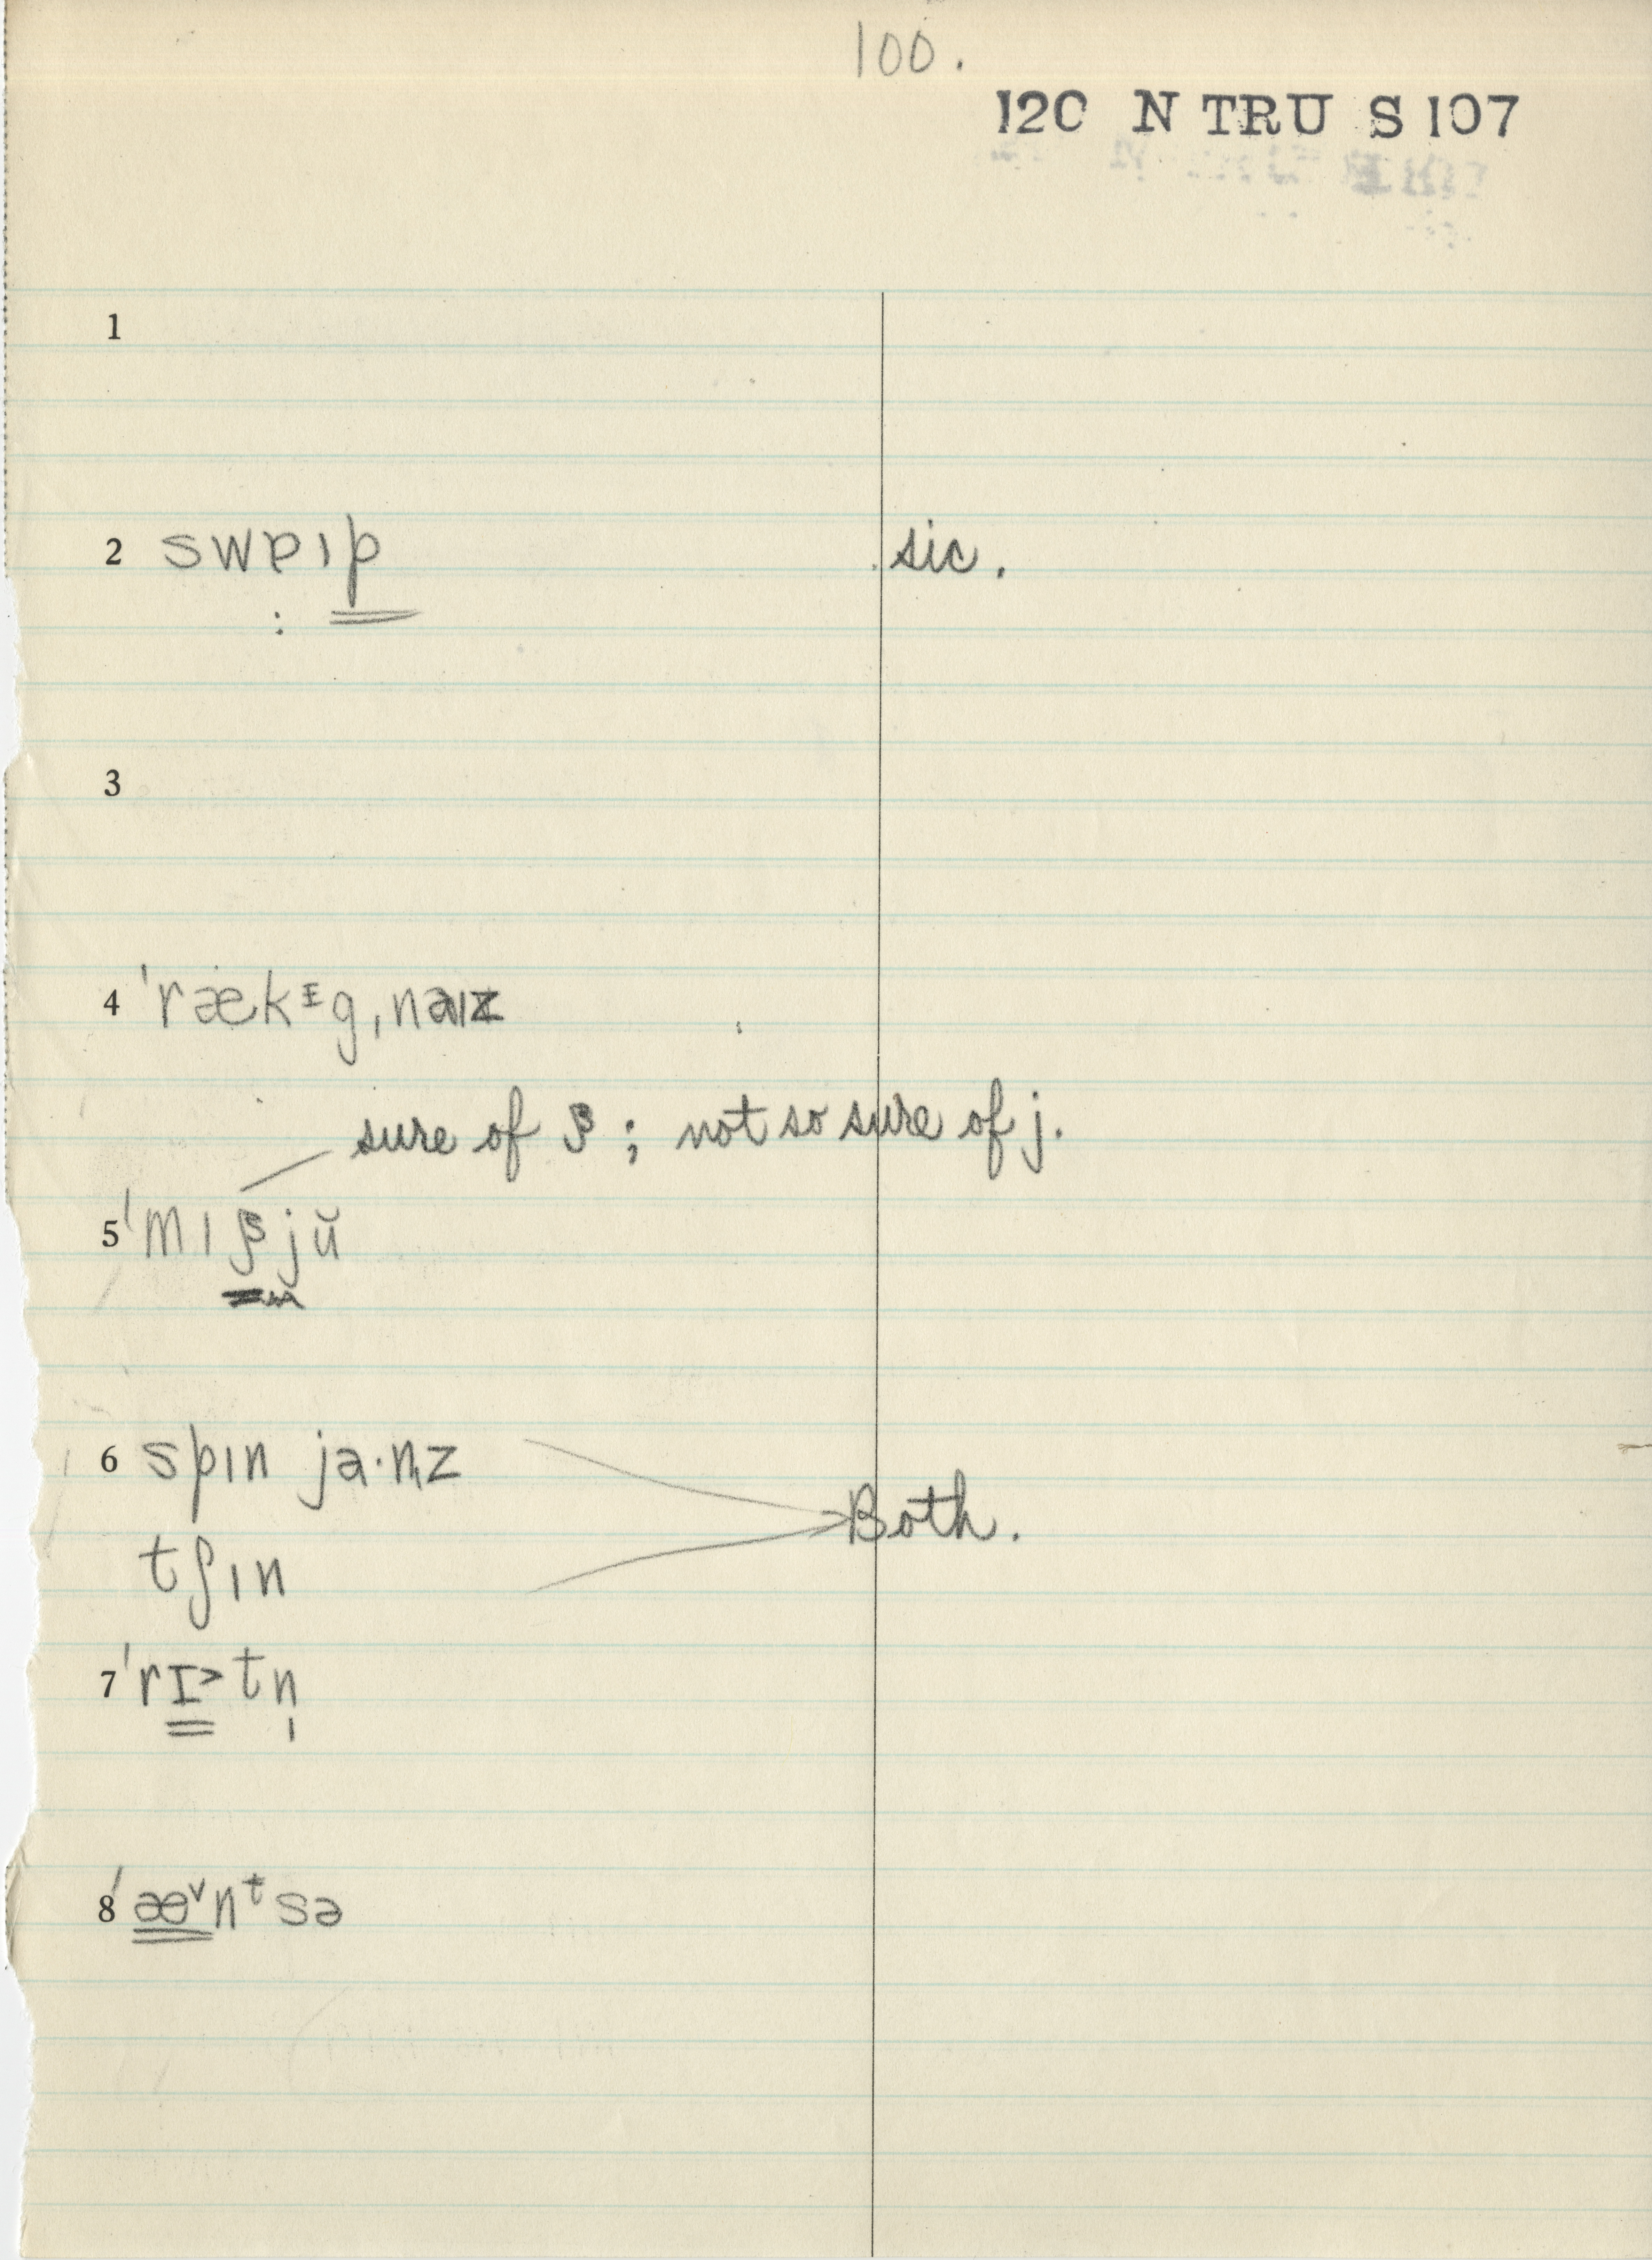 100.
120 N TRU S 107
1
2 swɐıp sic.
3
4 ˈrækᶦgˌnaız
sure of β; not so sure of j.
5 ˈmıβjŭ
6 spın ja·n̩z
Both.
tʃın
7 ˈrɪ˃tn̩
8 ˈæ˅nᵗsə